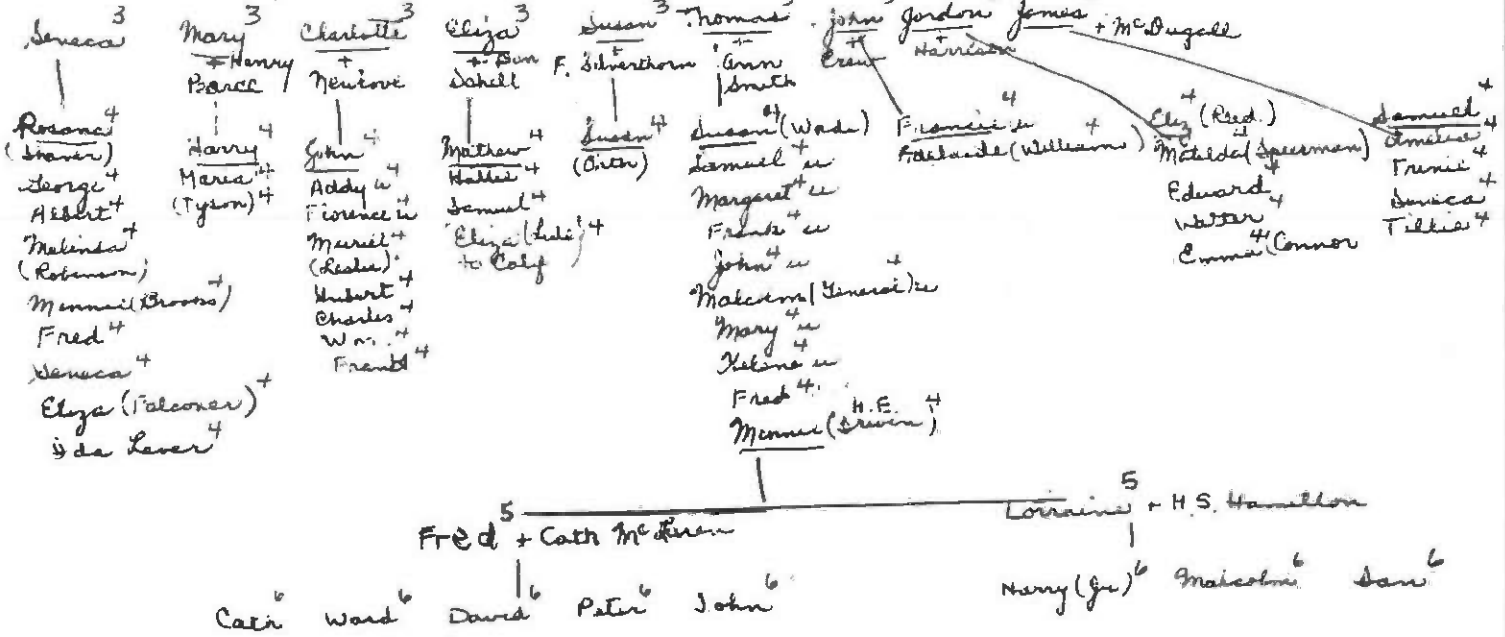 Seneca 3
Rosana 4
(Shaver)
George 4
Albert 4
Melinda 4
(Robinson)
Minnie (Brooks) 4
Fred 4
Seneca 4
Eliza (Falconer) 4
Ida Laver 4
Mary 3
+ Henry
Harry 4
Maria 4
(Tyson) 4
Charlotte 3
+
John 4
Addy u
Florence u
Muriel 4
(Leslie)
Hubert 4
Charles 4
Wm. 4
Frank 4
Eliza 3
+
Mathew 4
4
Samuel 4
Eliza 4
to Calif
Susan 3
+
F. Silverthorn
Susan 4
(Orth)
Thomas
+
Ann
Smith
Susan 4 (Wade)
Samuel 4 u
Margaret 4 u
Frank 4 u
John 4 u
Malcolm (General) 4 u
Mary 4 u
4 u
Fred 4
H.E.
Minnie 4
John
+
Crew
Francis 4 u
Adelaide (William) 4
Gordon
+
Harrison
Eliz 4 (Reed.)
Matilda 4 (Spearman)
Edward 4
Walter 4
Emma 4 (Connor
James + McDugall
Samuel 4
Amelia 4
4
Seneca 4
Tillie 4
Fred 5 + Cath
Lorraine 5 + H.S. Hamilton
Cath 6 Ward 6 David 6 Peter 6 John 6
Harry (Jr) 6 Malcolm 6 6